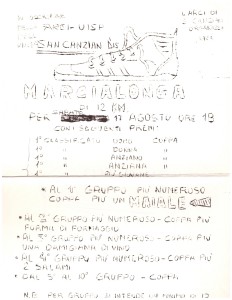 L'ARCI DI
S. CANZIAN
ORGANIZZA
UNA
SAN CANZIAN D'IS.
MARCIALONGA
DI 12 KM
PER SABATO 17 AGOSTO ORE 19
CON I SEGUENTI PREMI
1° CLASSIFICATO UOMO COPPA
1° " DONNA "
1° " ANZIANO "
1° " ANZIANA "
1° " PIÙ GIOVANE "
• AL 1° GRUPPO PIÙ NUMEROSO
COPPA PIÙ UN MAIALE
• AL 2° GRUPPO PIÙ NUMEROSO - COPPA PIÙ
FORME DI FORMAGGIO
• AL 3° GRUPPO PIÙ NUMEROSO - COPPA PIÙ
UNA DAMIGIANA DI VINO
• AL 4° GRUPPO PIÙ NUMEROSO - COPPA PIÙ
2 SALAMI
• DAL 5° AL 10° GRUPPO - COPPA
N.B. PER GRUPPO SI INTENDE UN MINIMO DI 10